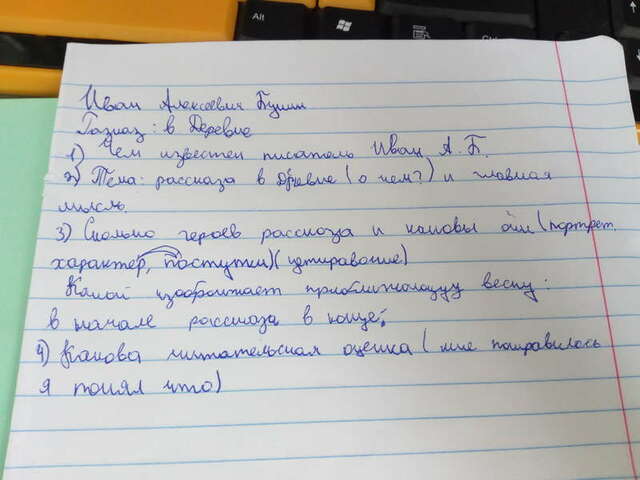 Alt
Ctrl
Иван Алексеевич Бунин
Газказ: в Деревне
1) Чем известен писатель Иван А. Б.
2) Тема: рассказа в Деревне (о чем?) и главная
мысль.
3) Сколько героев рассказа и каковы они (портрет.
характер, поступки) (цитирование)
Какой изображает приближающуу весну:
в начале рассказа в конце;
4) Какова читательская оценка (мне понравилось
я понял что)